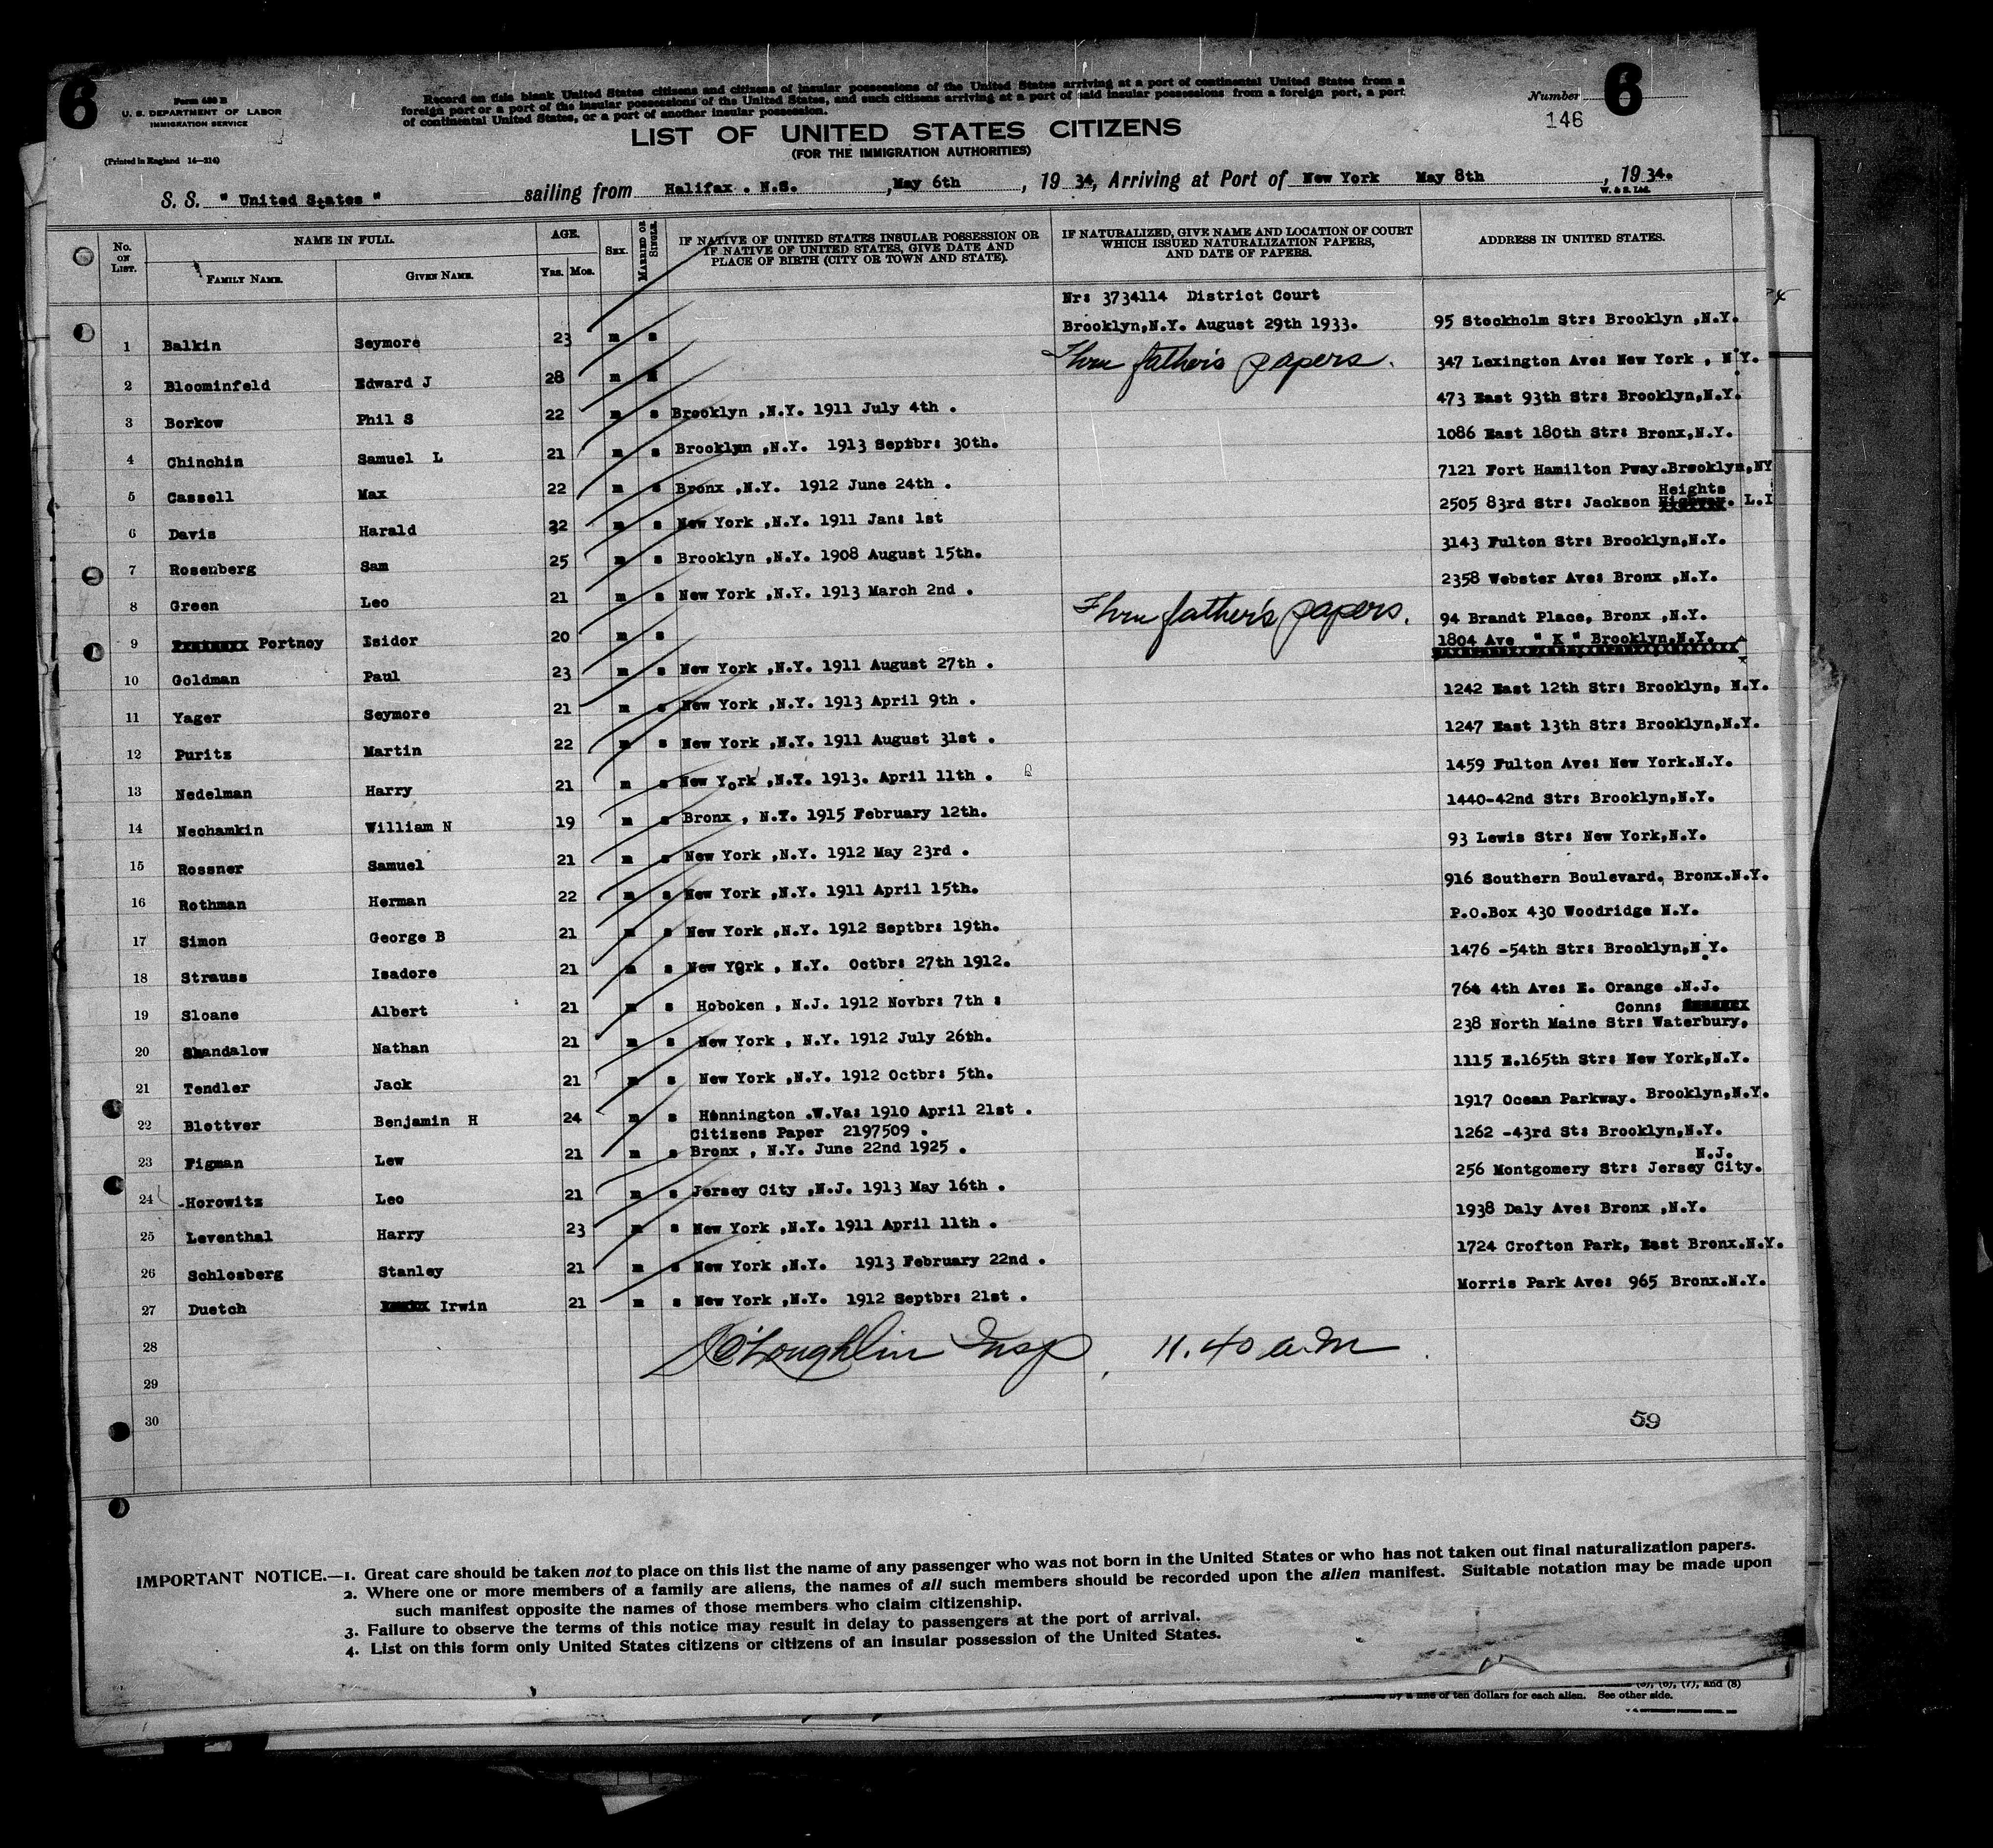 6
Form 430 B
U. S. DEPARTMENT OF LABOR
IMMIGRATION SERVICE
(Printed in England 14—214)
Record on this blank United States citizens and citizens of insular possessions of the United States arriving at a port of continental United States from a
foreign port or a port of the insular possessions of the United States, and such citizens arriving at a port of said insular possessions from a foreign port, a port
of continental United States, or a port of another insular possession.
Number 6
146
LIST OF UNITED STATES CITIZENS
(FOR THE IMMIGRATION AUTHORITIES)
S. S. " United States " sailing from Halifax . N.S. ,May 6th , 19 34, Arriving at Port of New York May 8th , 19 34.
W. & S. Ltd.
No. ON LIST. NAME IN FULL. AGE. SEX. MARRIED OR SINGLE. IF NATIVE OF UNITED STATES INSULAR POSSESSION OR IF NATIVE OF UNITED STATES, GIVE DATE AND PLACE OF BIRTH (CITY OR TOWN AND STATE). IF NATURALIZED, GIVE NAME AND LOCATION OF COURT WHICH ISSUED NATURALIZATION PAPERS, AND DATE OF PAPERS. ADDRESS IN UNITED STATES.
FAMILY NAME. GIVEN NAME. YRS. MOS.
Nr: 3734114 District Court
Brooklyn,N.Y. August 29th 1933.
1 Balkin Seymore 23 m s 95 Stockholm Str: Brooklyn ,N.Y.
2 Bloominfeld Edward J 28 m Thru father's papers. 347 Lexington Ave: New York , N.Y.
3 Borkow Phil S 22 m s Brooklyn ,N.Y. 1911 July 4th . 473 East 93th Str: Brooklyn,N.Y.
4 Chinchin Samuel L 21 m s Brooklyn ,N.Y. 1913 Septbr: 30th. 1086 East 180th Str: Bronx,N.Y.
5 Cassell Max 22 m s Bronx ,N.Y. 1912 June 24th . 7121 Fort Hamilton Pway.Brooklyn,NY
Heights
6 Davis Harald 22 m s New York ,N.Y. 1911 Jan: 1st 2505 83rd Str: Jackson . L.I
7 Rosenberg Sam 25 m s Brooklyn ,N.Y. 1908 August 15th. 3143 Fulton Str: Brooklyn,N.Y.
8 Green Leo 21 m s New York ,N.Y. 1913 March 2nd . 2358 Webster Ave: Bronx ,N.Y.
9 Portnoy Isidor 20 m s Thru father's papers. 94 Brandt Place, Bronx ,N.Y.
10 Goldman Paul 23 m s New York ,N.Y. 1911 August 27th . 1804 Ave " K " Brooklyn.N.Y.
11 Yager Seymore 21 m s New York ,N.Y. 1913 April 9th . 1242 East 12th Str: Brooklyn, N.Y.
12 Puritz Martin 22 m s New York ,N.Y. 1911 August 31st . 1247 East 13th Str: Brooklyn,N.Y.
13 Nedelman Harry 21 m s New York ,N.Y. 1913. April 11th . 1459 Fulton Ave: New York.N.Y.
14 Nechamkin William N 19 m s Bronx , N.Y. 1915 February 12th. 1440-42nd Str: Brooklyn,N.Y.
15 Rossner Samuel 21 m s New York ,N.Y. 1912 May 23rd . 93 Lewis Str: New York,N.Y.
16 Rothman Herman 22 m s New York ,N.Y. 1911 April 15th. 916 Southern Boulevard. Bronx.N.Y.
17 Simon George B 21 m s New York ,N.Y. 1912 Septbr: 19th. P.O.Box 430 Woodridge N.Y.
18 Strauss Isadore 21 m s New York , N.Y. Octbr: 27th 1912. 1476 -54th Str: Brooklyn,N.Y.
19 Sloane Albert 21 m s Hoboken , N.J. 1912 Novbr: 7th : 764 4th Ave: E. Orange .N.J.
Conn:
20 Skandalow Nathan 21 m s New York , N.Y. 1912 July 26th. 238 North Maine Str: Waterbury,
21 Tendler Jack 21 m s New York ,N.Y. 1912 Octbr: 5th. 1115 E.165th Str: New York,N.Y.
22 Blettver Benjamin H 24 m s Hennington .W.Va: 1910 April 21st . 1917 Ocean Parkway. Brooklyn,N.Y.
Citizens Paper 2197509 .
23 Figman Lew 21 m s Bronx , N.Y. June 22nd 1925 . 1262 -43rd St: Brooklyn,N.Y.
N.J.
24 -Horowitz Leo 21 m s Jersey City ,N.J. 1913 May 16th . 256 Montgomery Str: Jersey City.
25 Leventhal Harry 23 m s New York ,N.Y. 1911 April 11th . 1938 Daly Ave: Bronx ,N.Y.
26 Schlosberg Stanley 21 m s New York ,N.Y. 1913 February 22nd . 1724 Crofton Park, East Bronx.N.Y.
27 Duetch Irwin 21 m s New York ,N.Y. 1912 Septbr: 21st . Morris Park Ave: 965 Bronx.N.Y.
28 O'Loughlin Insp, 11.40 a.m.
29
30
59
IMPORTANT NOTICE.—1. Great care should be taken not to place on this list the name of any passenger who was not born in the United States or who has not taken out final naturalization papers.
2. Where one or more members of a family are aliens, the names of all such members should be recorded upon the alien manifest. Suitable notation may be made upon
such manifest opposite the names of those members who claim citizenship.
3. Failure to observe the terms of this notice may result in delay to passengers at the port of arrival.
4. List on this form only United States citizens or citizens of an insular possession of the United States.
(5), (6), (7), and (8)
by a fine of ten dollars for each alien. See other side.